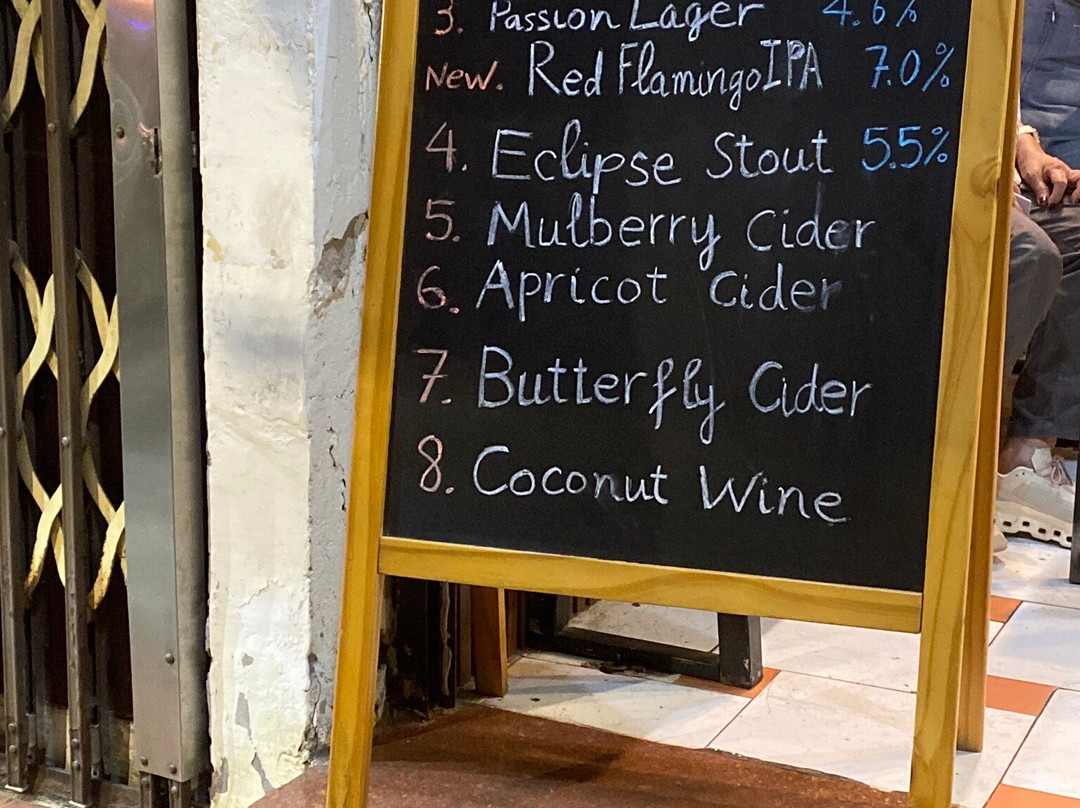 3. Passion Lager 4.6%
New. Red Flamingo IPA 7.0%
4. Eclipse Stout 5.5%
5. Mulberry Cider
6. Apricot Cider
7. Butterfly Cider
8. Coconut Wine